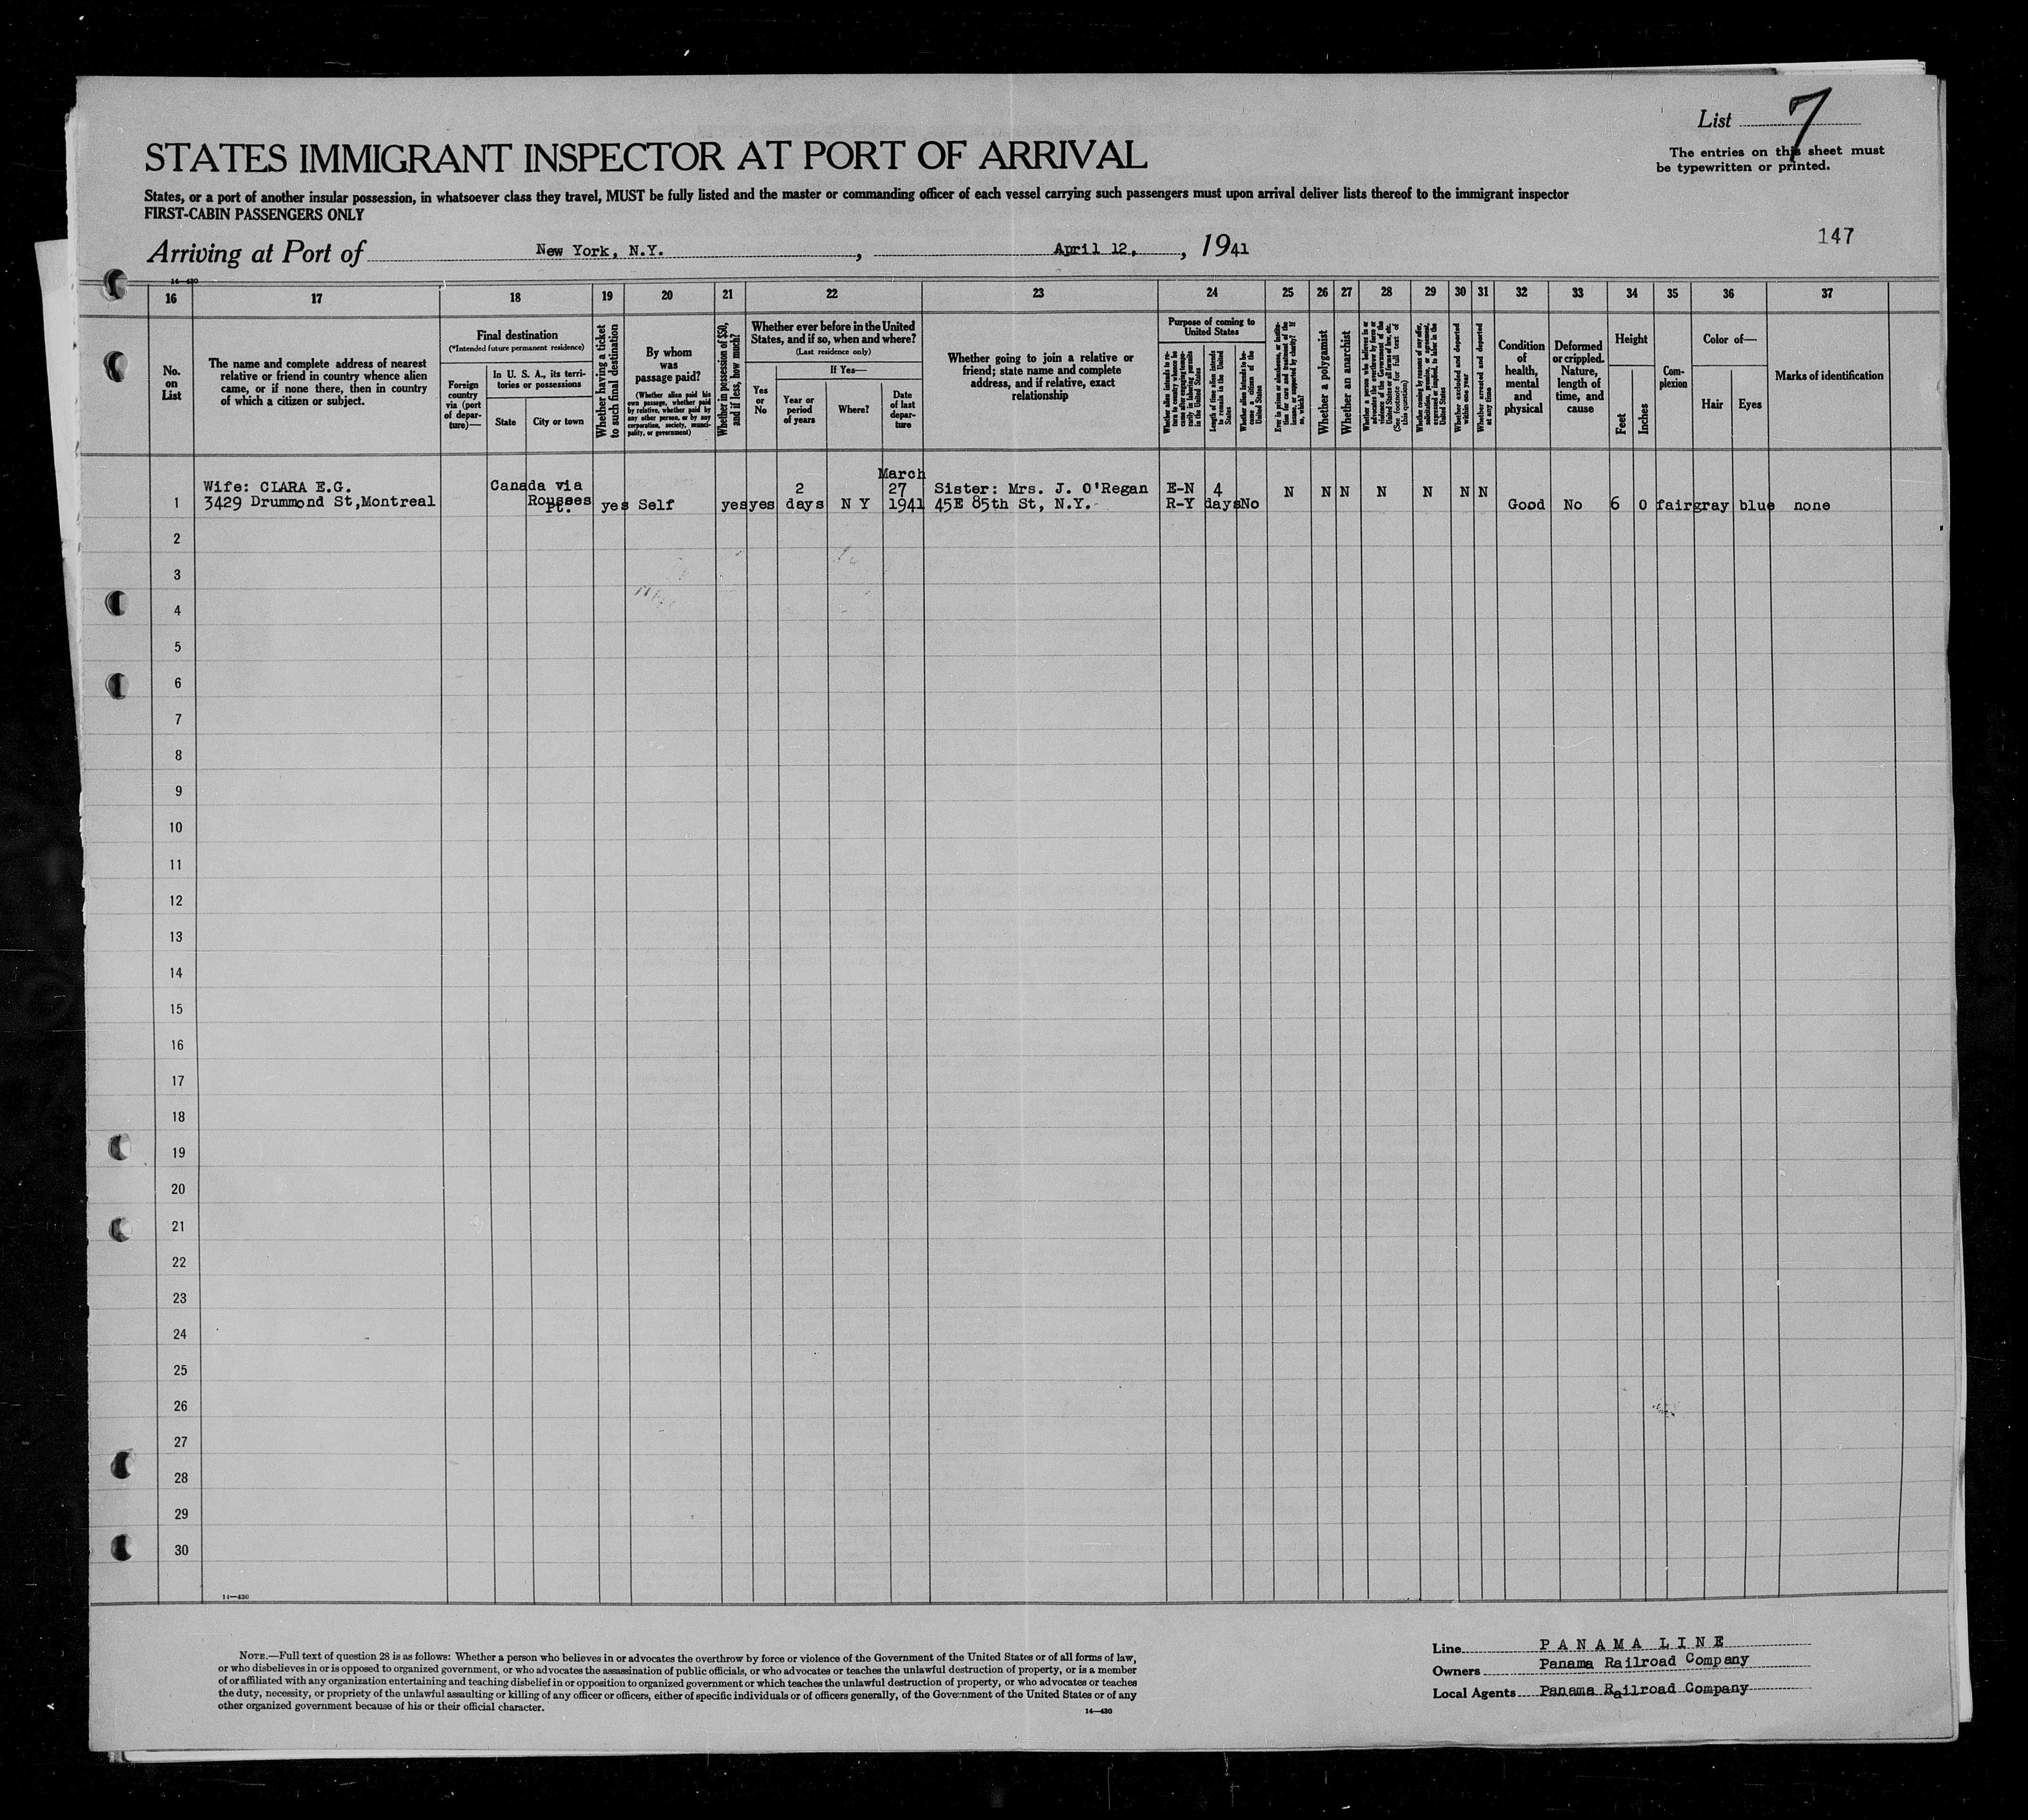 List 7
The entries on this sheet must
be typewritten or printed.
STATES IMMIGRANT INSPECTOR AT PORT OF ARRIVAL
States, or a port of another insular possession, in whatsoever class they travel, MUST be fully listed and the master or commanding officer of each vessel carrying such passengers must upon arrival deliver lists thereof to the immigrant inspector
FIRST-CABIN PASSENGERS ONLY
147
Arriving at Port of New York, N.Y. , April 12, , 1941
14—430
16 17 18 19 20 21 22 23 24 25 26 27 28 29 30 31 32 33 34 35 36 37
No.
on
List
The name and complete address of nearest
relative or friend in country whence alien
came, or if none there, then in country
of which a citizen or subject.
Final destination
(*Intended future permanent residence)
Foreign
country
via (port
of depar-
ture)—
In U. S. A., its terri-
tories or possessions
State
City or town
Whether having a ticket
to such final destination
By whom
was
passage paid?
(Whether alien paid his
own passage, whether paid
by relative, whether paid by
any other person, or by any
corporation, society, munici-
pality, or government)
Whether in possession of $50,
and if less, how much?
Whether ever before in the United
States, and if so, when and where?
(Last residence only)
Yes
or
No
If Yes—
Year or
period
of years
Where?
Date
of last
depar-
ture
Whether going to join a relative or
friend; state name and complete
address, and if relative, exact
relationship
Purpose of coming to
United States
Length of time alien intends
to remain in the United
States
Whether alien intends to be-
come a citizen of the
United States
Whether a polygamist
Whether an anarchist
(See footnote for full text of
this question)
Whether excluded and deported
within one year
Whether arrested and deported
at any time
Condition
of
health,
mental
and
physical
Deformed
or crippled.
Nature,
length of
time, and
cause
Height
Feet
Inches
Com-
plexion
Color of—
Hair
Eyes
Marks of identification
1 Wife: CLARA E.G.
3429 Drummond St,Montreal
Canada via
Rouses
Pt.
yes Self yes yes
2
days
N Y
March
27
1941
Sister: Mrs. J. O'Regan
45E 85th St, N.Y.
E-N
R-Y
4
days No N N N N N N N Good No 6 0 fair gray blue none
2
3
4
5
6
7
8
9
10
11
12
13
14
15
16
17
18
19
20
21
22
23
24
25
26
27
28
29
30
14—430
NOTE.—Full text of question 28 is as follows: Whether a person who believes in or advocates the overthrow by force or violence of the Government of the United States or of all forms of law,
or who disbelieves in or is opposed to organized government, or who advocates the assassination of public officials, or who advocates or teaches the unlawful destruction of property, or is a member
of or affiliated with any organization entertaining and teaching disbelief in or opposition to organized government or which teaches the unlawful destruction of property, or who advocates or teaches
the duty, necessity, or propriety of the unlawful assaulting or killing of any officer or officers, either of specific individuals or of officers generally, of the Government of the United States or of any
other organized government because of his or their official character.
14—430
Line PANAMA LINE
Owners Panama Railroad Company
Local Agents Panama Railroad Company